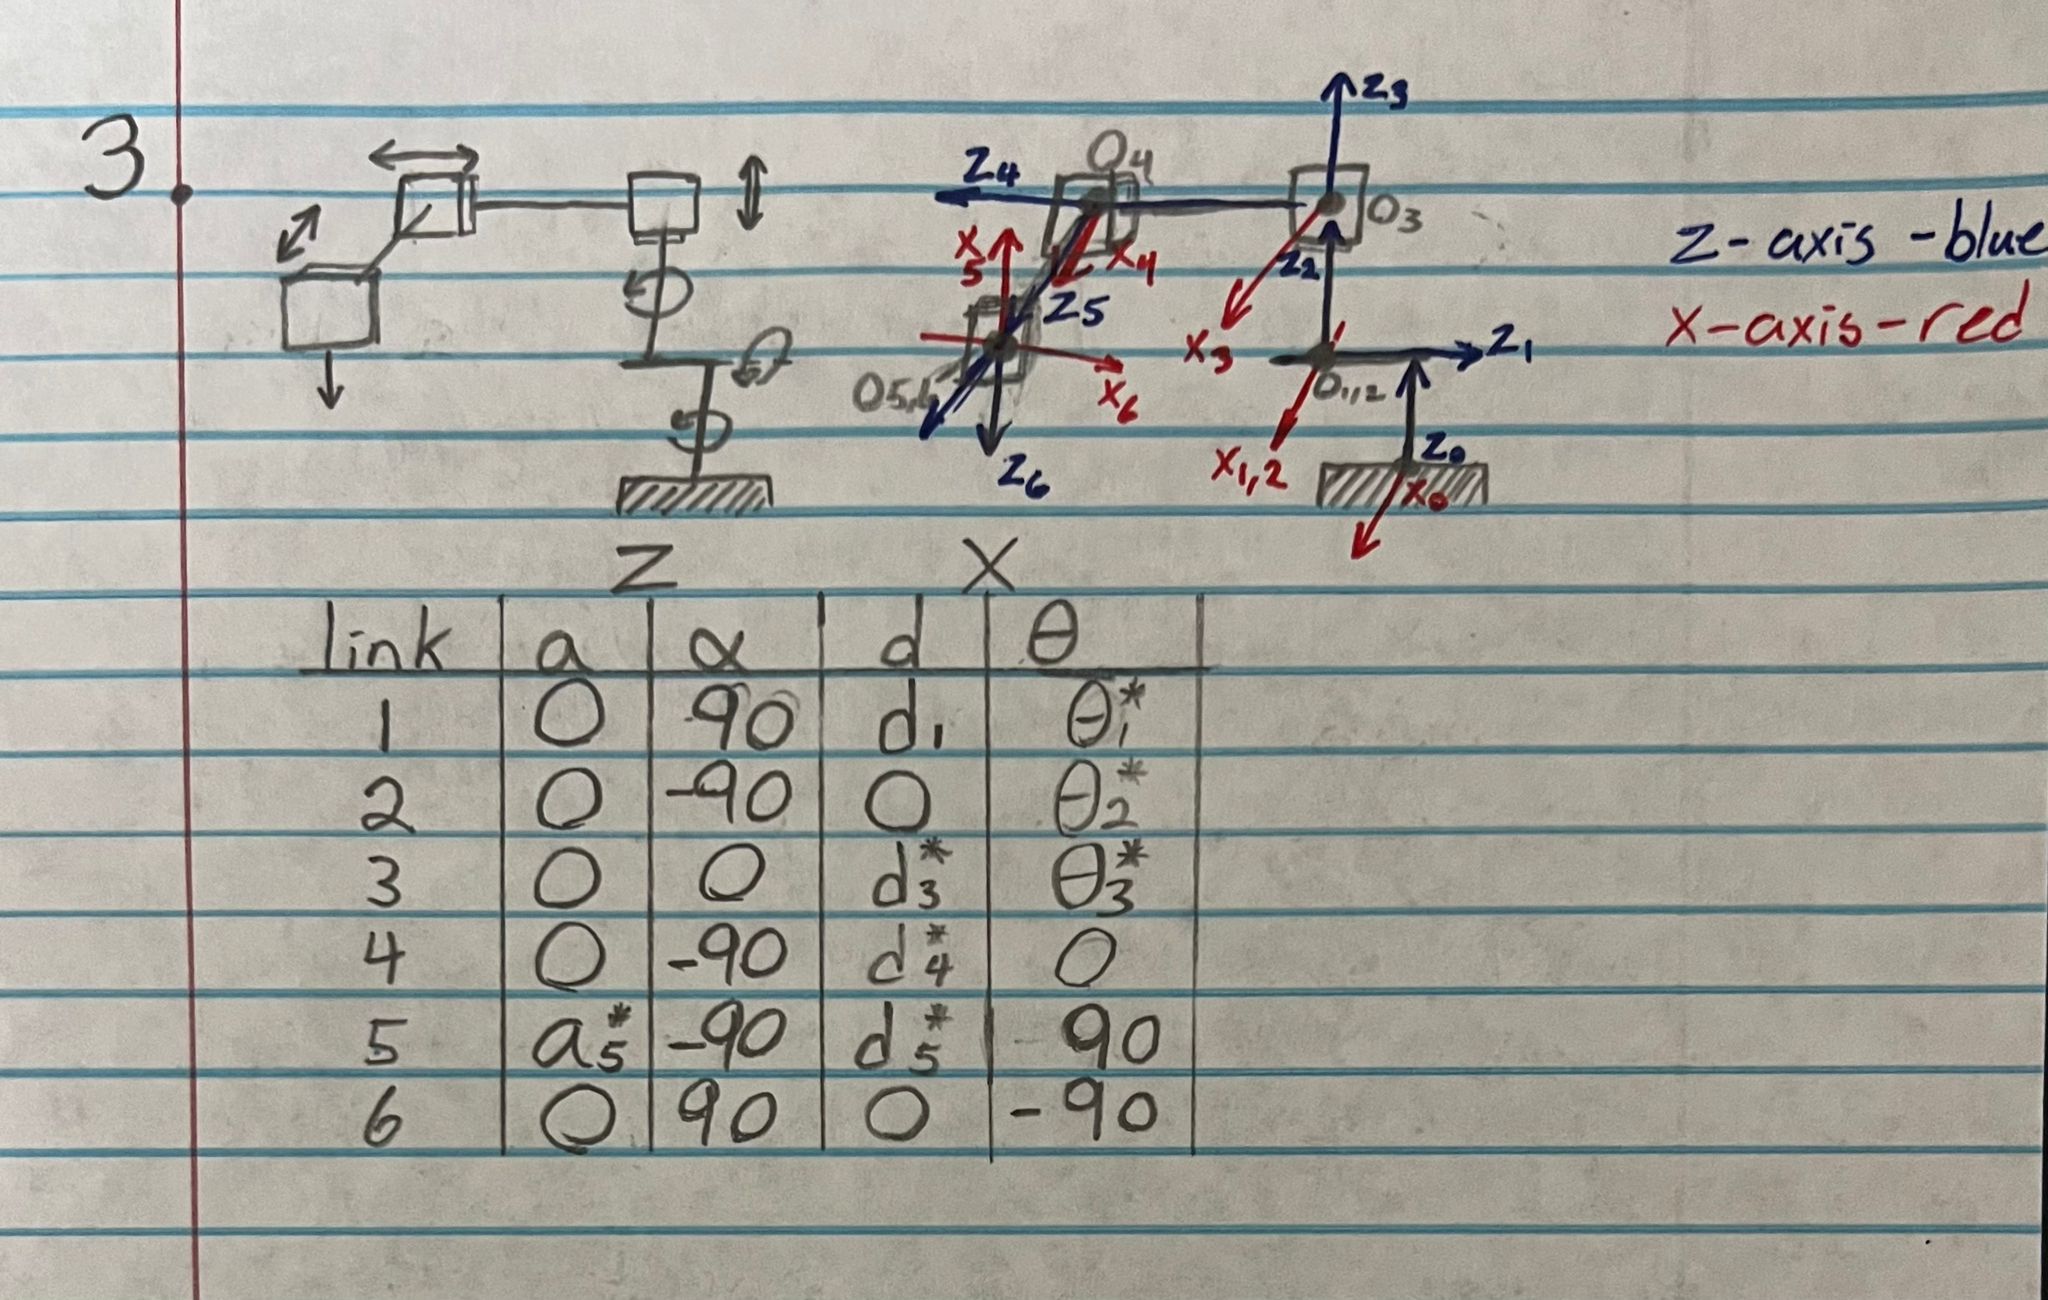 3
Z₃
O₄
Z₄
O₃
X₅
X₄
Z₂
Z₅
X₃
Z₁
O₁,₂
O₅,₆
X₆
X₁,₂
Z₀
Z₆
X₀
Z-axis-blue
X-axis-red
Z X
link a α d θ
1 0 90 d₁ θ₁*
2 0 -90 0 θ₂*
3 0 0 d₃* θ₃*
4 0 -90 d₄* 0
5 a₅* -90 d₅* 90
6 0 90 0 -90